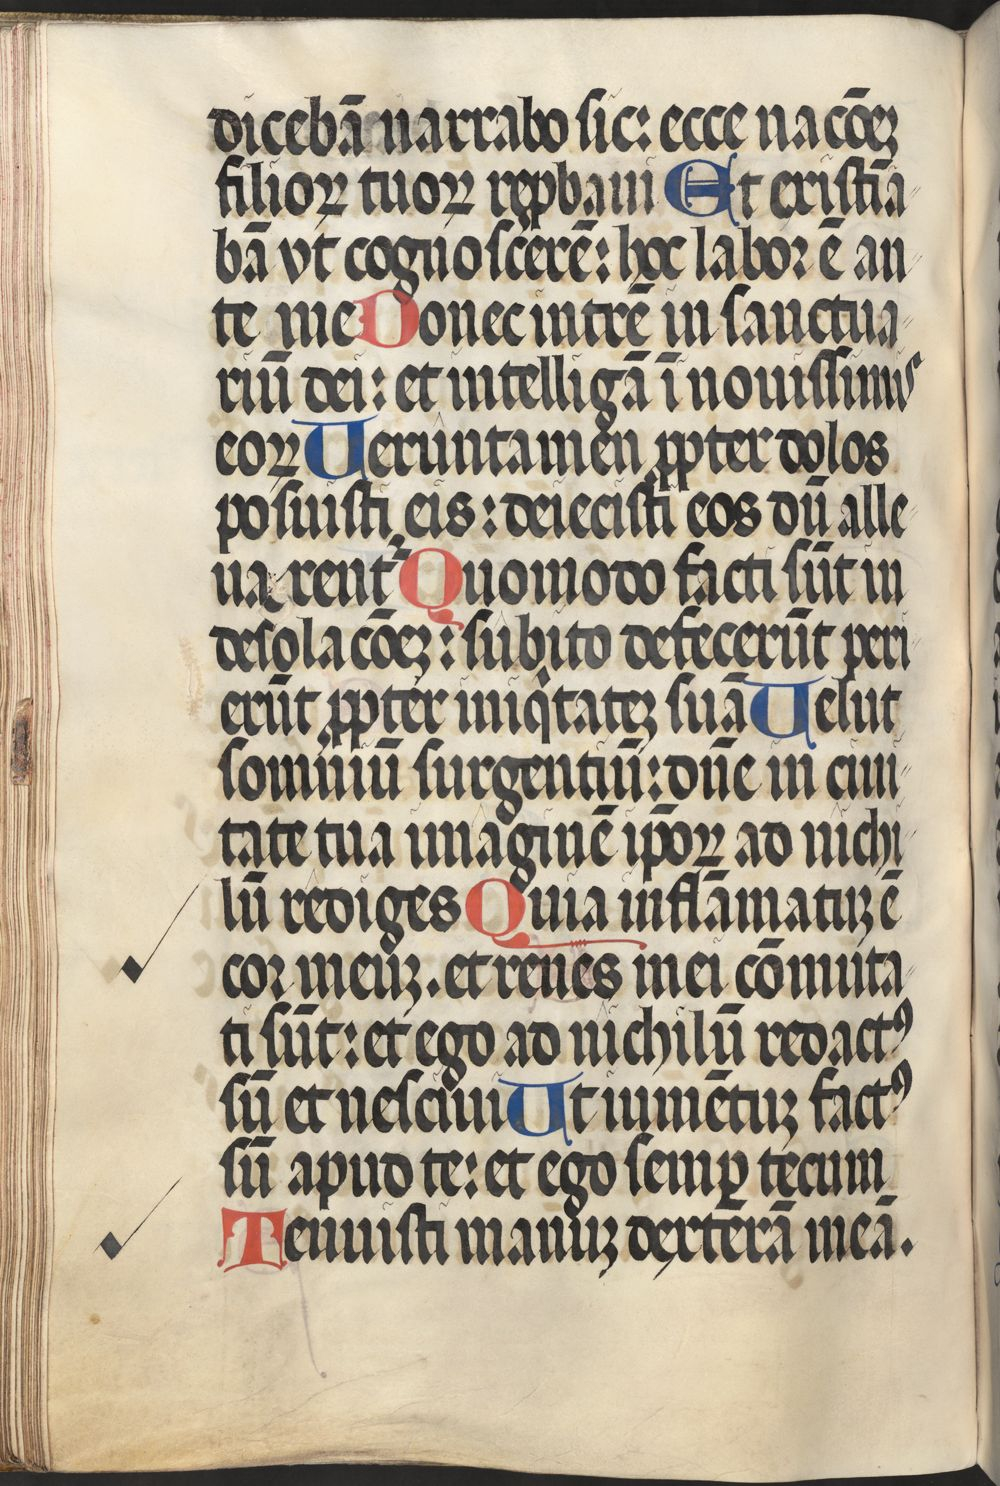 dicebā narrabo sic: ecce nacōeꝫ
filioꝝ tuoꝝ rep̱baui Et existīa⸗
bā vt cognoscerē: hoc labor ē an⸗
te me Donec intrē in sanctua⸗
riū dei: et intelligā ī nouissimis
eoꝝ Ueruntamen ꝓpter dolos
posuisti eis: deiecisti eos dū alle⸗
uarent᷑ Quomodo facti sūt in
desolacōeꝫ: subito defecerūt peri⸗
erūt ꝓpter iniqͥtateꝫ suā Uelut
somniū surgentiū: dn̄e in ciui⸗
tate tua imaginē ip̄oꝝ ad nichi⸗
lū rediges Quia inflāmatuꝫ ē
cor meuꝫ. et renes mei cōmuta⸗
ti sūt: et ego ad nichilū redactꝰ
sū et nesciui Ut iumētuꝫ factꝰ
sū apud te: et ego semꝑ tecum
Tenuisti manuꝫ dexterā meā.